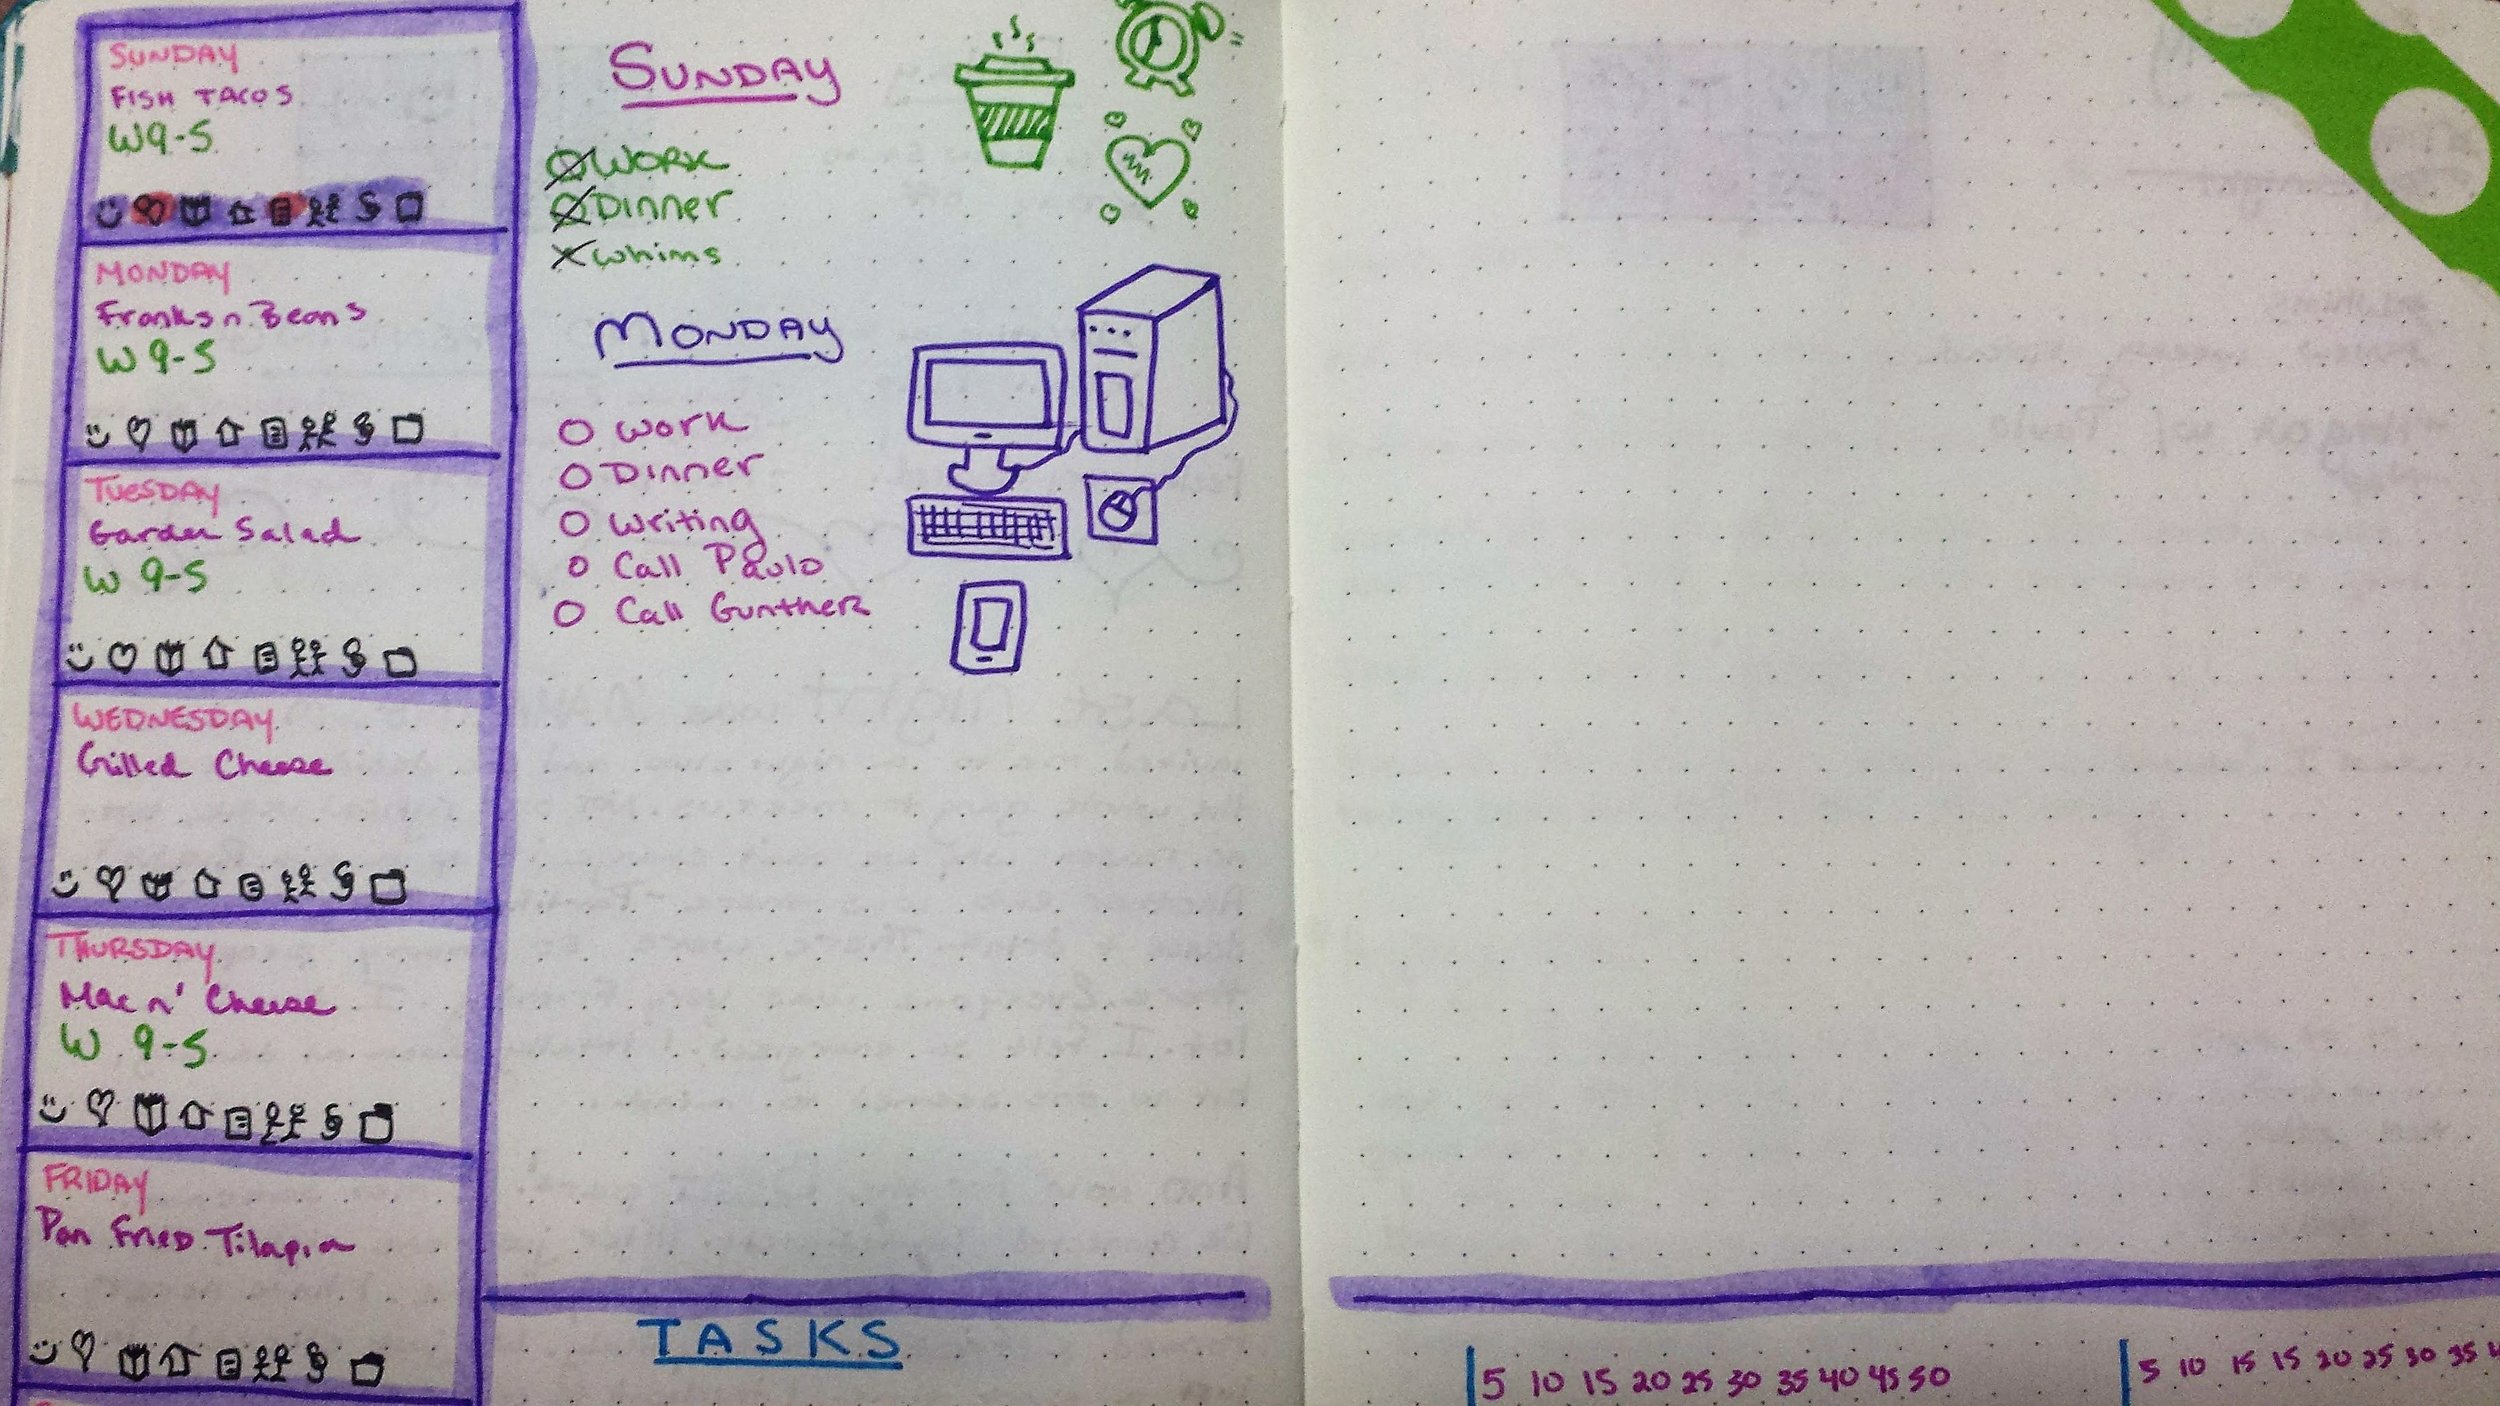 SUNDAY
FISH TACOS
W 9-5
MONDAY
Franks n Beans
W 9-5
TUESDAY
Garden Salad
W 9-5
WEDNESDAY
Grilled Cheese
THURSDAY
Mac n' Cheese
W 9-5
FRIDAY
Pan Fried Tilapia
SUNDAY
WORK
Dinner
Whims
MONDAY
Work
Dinner
Writing
Call Paulo
Call Gunther
TASKS
5 10 15 20 25 30 35 40 45 50
5 10 15 15 20 25 30 35